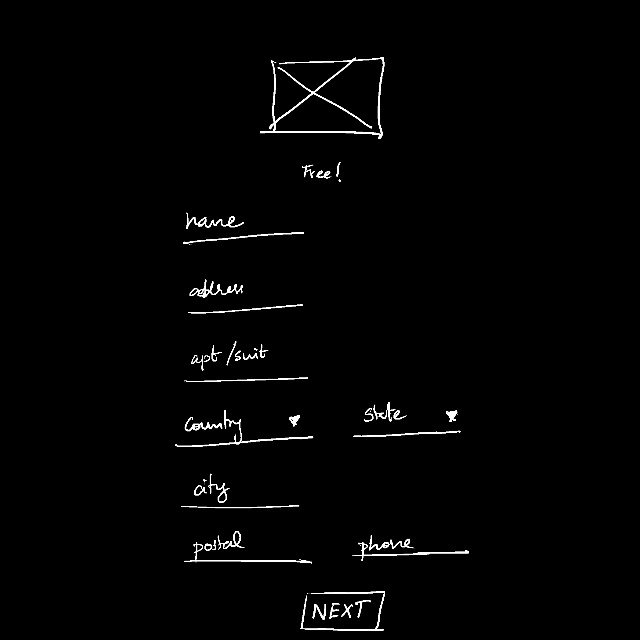 Free!
name
address
apt/suit
country state
city
postal phone
NEXT